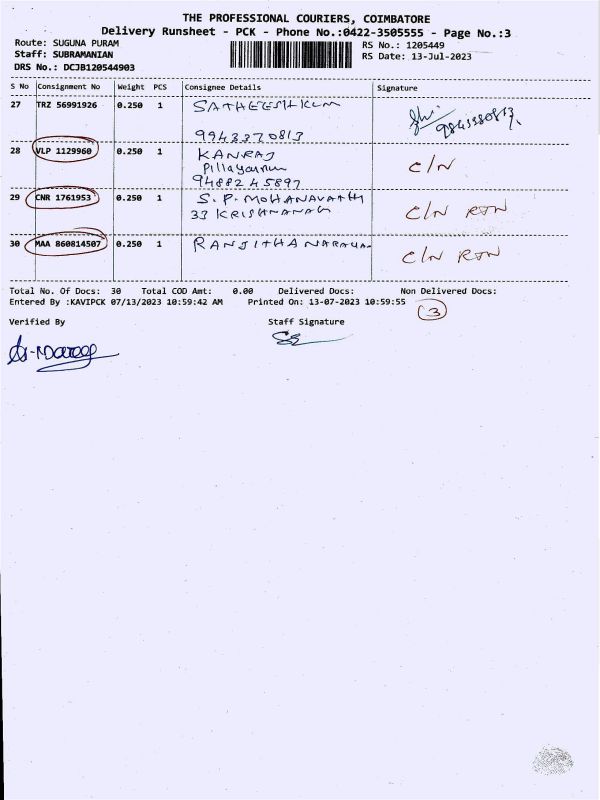 THE PROFESSIONAL COURIERS, COIMBATORE
Delivery Runsheet - PCK - Phone No.:0422-3505555 - Page No.:3
Route: SUGUNA PURAM RS No.: 1205449
Staff: SUBRAMANIAN RS Date: 13-Jul-2023
DRS No.: DCJB120544903
S No Consignment No Weight PCS Consignee Details Signature
27 TRZ 56991926 0.250 1 SATHEESHKUM
9943320813
28 VLP 1129960 0.250 1 KANRAJ C/N
9488245897
29 CNR 1761953 0.250 1 S.P.MOHANAVATHI C/N RTN
33 KRISHNANAG
30 MAA 860814507 0.250 1 RANJITHA NARAYA C/N RTN
Total No. Of Docs: 30 Total COD Amt: 0.00 Delivered Docs: Non Delivered Docs:
Entered By :KAVIPCK 07/13/2023 10:59:42 AM Printed On: 13-07-2023 10:59:55
3
Verified By Staff Signature